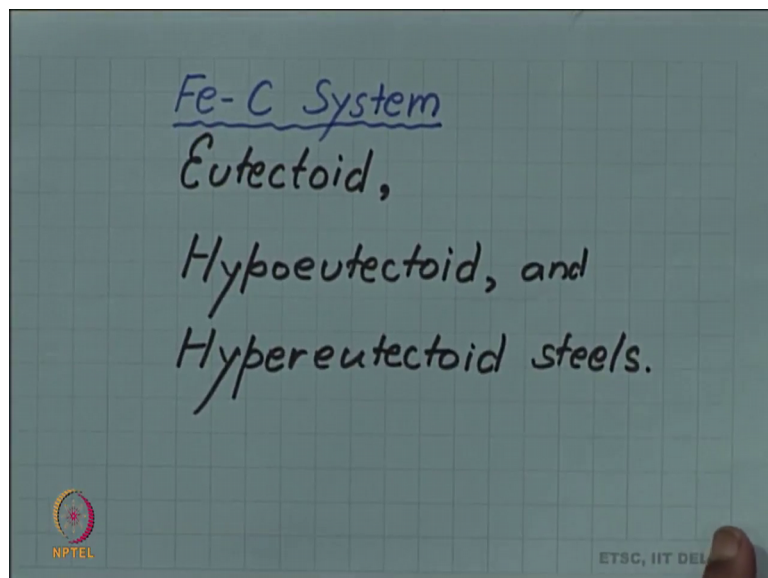 Fe-C System
Eutectoid,
Hypoeutectoid, and
Hypereutectoid steels.
NPTEL
ETSC, IIT DEL